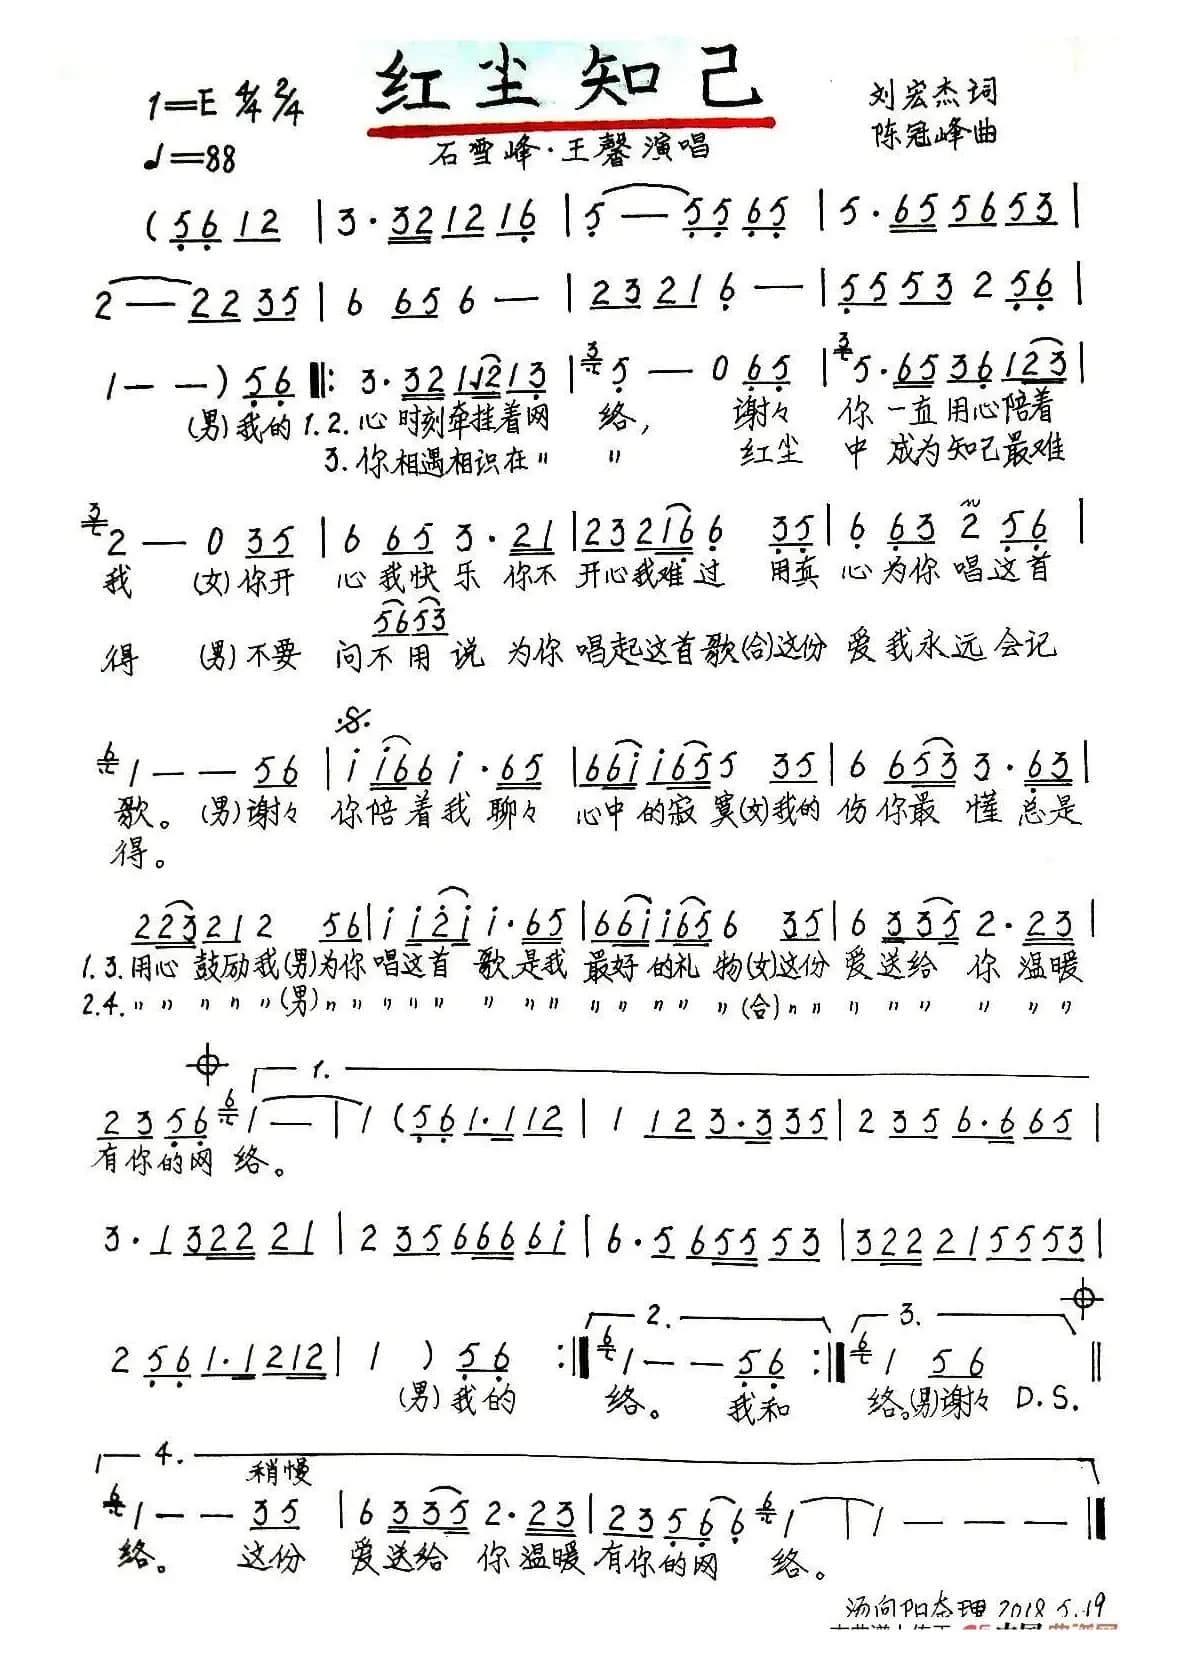 红尘知己
1=E 4/4 2/4
♩=88
石雪峰·王馨演唱
刘宏杰词
陈冠峰曲
(5612 | 3·32 1216 | 5 — 5565 | 5·65 5653 |
2 — 2235 | 6 656 — | 2321 6 — | 5553 2 56 |
1 — —) 56 ‖: 3·32 1213 | 3 5 — 0 65 | 3 5·65 36123 |
(男)我的 1.2.心时刻牵挂着网 络， 谢々 你一直用心陪着
3.你相遇相识在〃 〃 红尘 中成为知己最难
3 2 — 0 35 | 6 65 3·21 | 232166 35 | 6 63 2 56 |
我 (女)你开 心我快乐 你不 开心我难过 用真 心为你唱这首
5653
得 (男)不要 问不用说 为你 唱起这首歌(合)这份 爱我永远会记
6 1 — — 56 | i i66 i·65 | 66i i655 35 | 6 653 3·63 |
歌。(男)谢々 你陪着我 聊々 心中的寂寞(女)我的 伤你最 懂 总是
得。
223212 56 | i i2i i·65 | 66i i656 35 | 6 335 2·23 |
1.3.用心 鼓励我(男)为你唱这首 歌是我 最好的礼物(女)这份爱送给 你温暖
2.4.〃 〃 〃 〃 〃(男)〃 〃 〃 〃 〃 〃 〃 〃 〃 〃 〃 〃 〃(合)〃 〃 〃 〃 〃 〃 〃 〃
1.
2356 6 1 — | 1 (561·112 | 1 123·335 | 235 6·665 |
有你的网 络。
3·1 3222 21 | 235666 6i | 6·5 6555 53 | 3222 15553 |
2. 3.
2 561·1212 | 1 ) 56 :‖ 6 1 — — 56 :‖ 6 1 56 ‖
(男)我的 络。 我和 络。(男)谢々 D.S.
4.
稍慢
6 1 — — 35 | 6 335 2·23 | 23566 6 1 — | 1 — — — ‖
络。 这份 爱送给 你温暖 有你的网 络。
2018.5.19